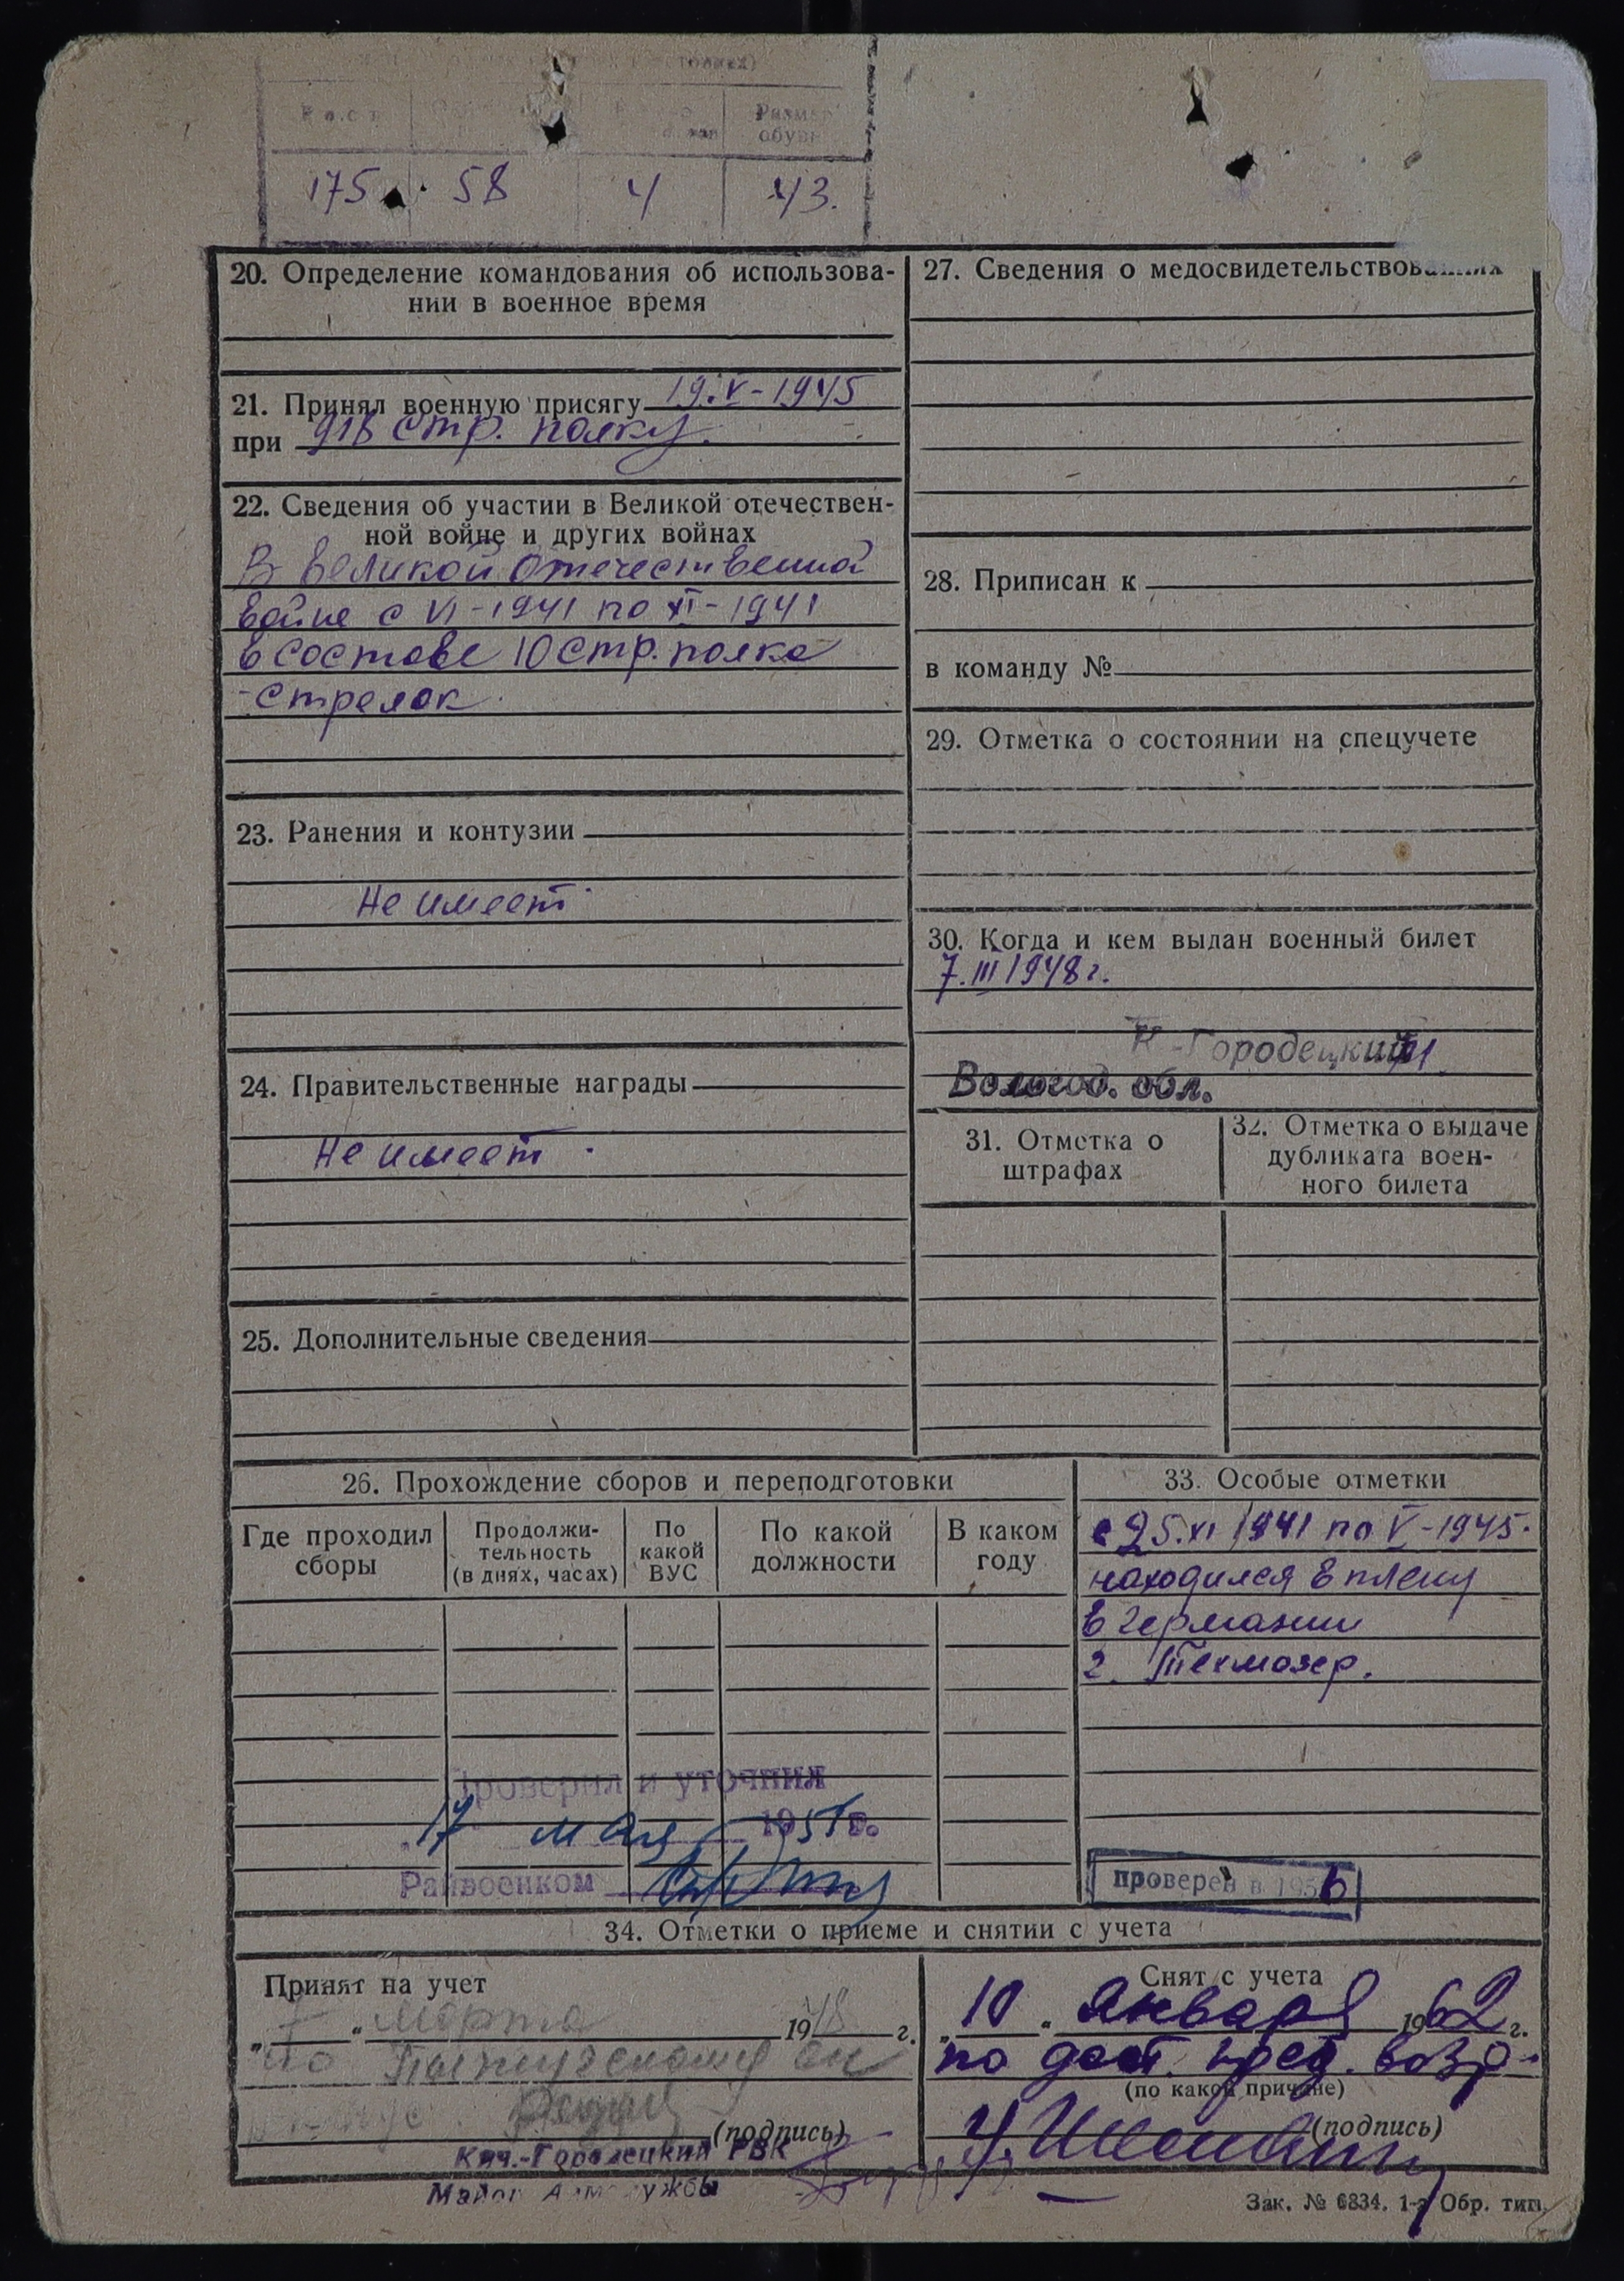 Размер
обуви
175 58 4 43.
20. Определение командования об использова-
нии в военное время
21. Принял военную присягу 19.V-1945
при 918 стр. полку.
22. Сведения об участии в Великой отечествен-
ной войне и других войнах
В Великой Отечественной
войне с VI-1941 по XI-1941
в составе 10 стр. полка
-стрелок.
23. Ранения и контузии
Не имеет.
24. Правительственные награды
Не имеет.
25. Дополнительные сведения
27. Сведения о медосвидетельствованиях
28. Приписан к
в команду №
29. Отметка о состоянии на спецучете
30. Когда и кем выдан военный билет
7.III 1948 г.
К-Городецкий
Вологод. обл.
31. Отметка о
штрафах
32. Отметка о выдаче
дубликата воен-
ного билета
26. Прохождение сборов и переподготовки
Где проходил
сборы
Продолжи-
тельность
(в днях, часах)
По
какой
ВУС
По какой
должности
В каком
году
Проверил и уточнил
17 мая 1951 г.
Райвоенком
33. Особые отметки
с 25.XI 1941 по V-1945.
находился в плену
в Германии
г.
проверен в 1956
34. Отметки о приеме и снятии с учета
Принят на учет
" 7 " марта 1948 г.
по
(подпись)
Кич.-Городецкий РВК
Майор
Снят с учета
" 10 " января 1962 г.
по дост. пред. возр.
(по какой причине)
(подпись)
Зак. № 6834. 1-я Обр. тип.